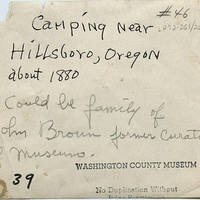 #46
Camping near
Hillsboro, Oregon
about 1880
Could be family of
John Brown former Curator
Museum.
WASHINGTON COUNTY MUSEUM
39
No Duplication Without